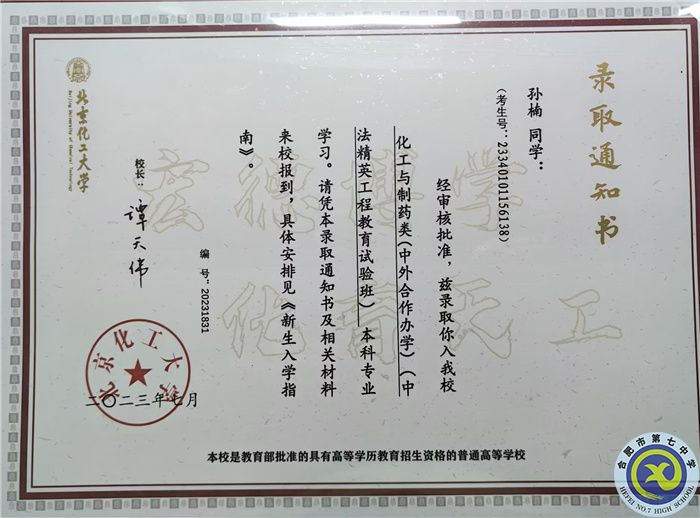 录取通知书
孙楠 同学：
（考生号：23340101156138）
经审核批准，兹录取你入我校
化工与制药类（中外合作办学）（中
法精英工程教育试验班）本科专业
学习。请凭本录取通知书及相关材料
来校报到，具体安排见《新生入学指
南》。
宏德博学
化育天工
编 号：20231831
校长：
谭天伟
北京化工大学
Beijing University of Chemical Technology
北京化工大学
二〇二三年七月
本校是教育部批准的具有高等学历教育招生资格的普通高等学校
合肥市第七中学
HEFEI NO.7 HIGH SCHOOL